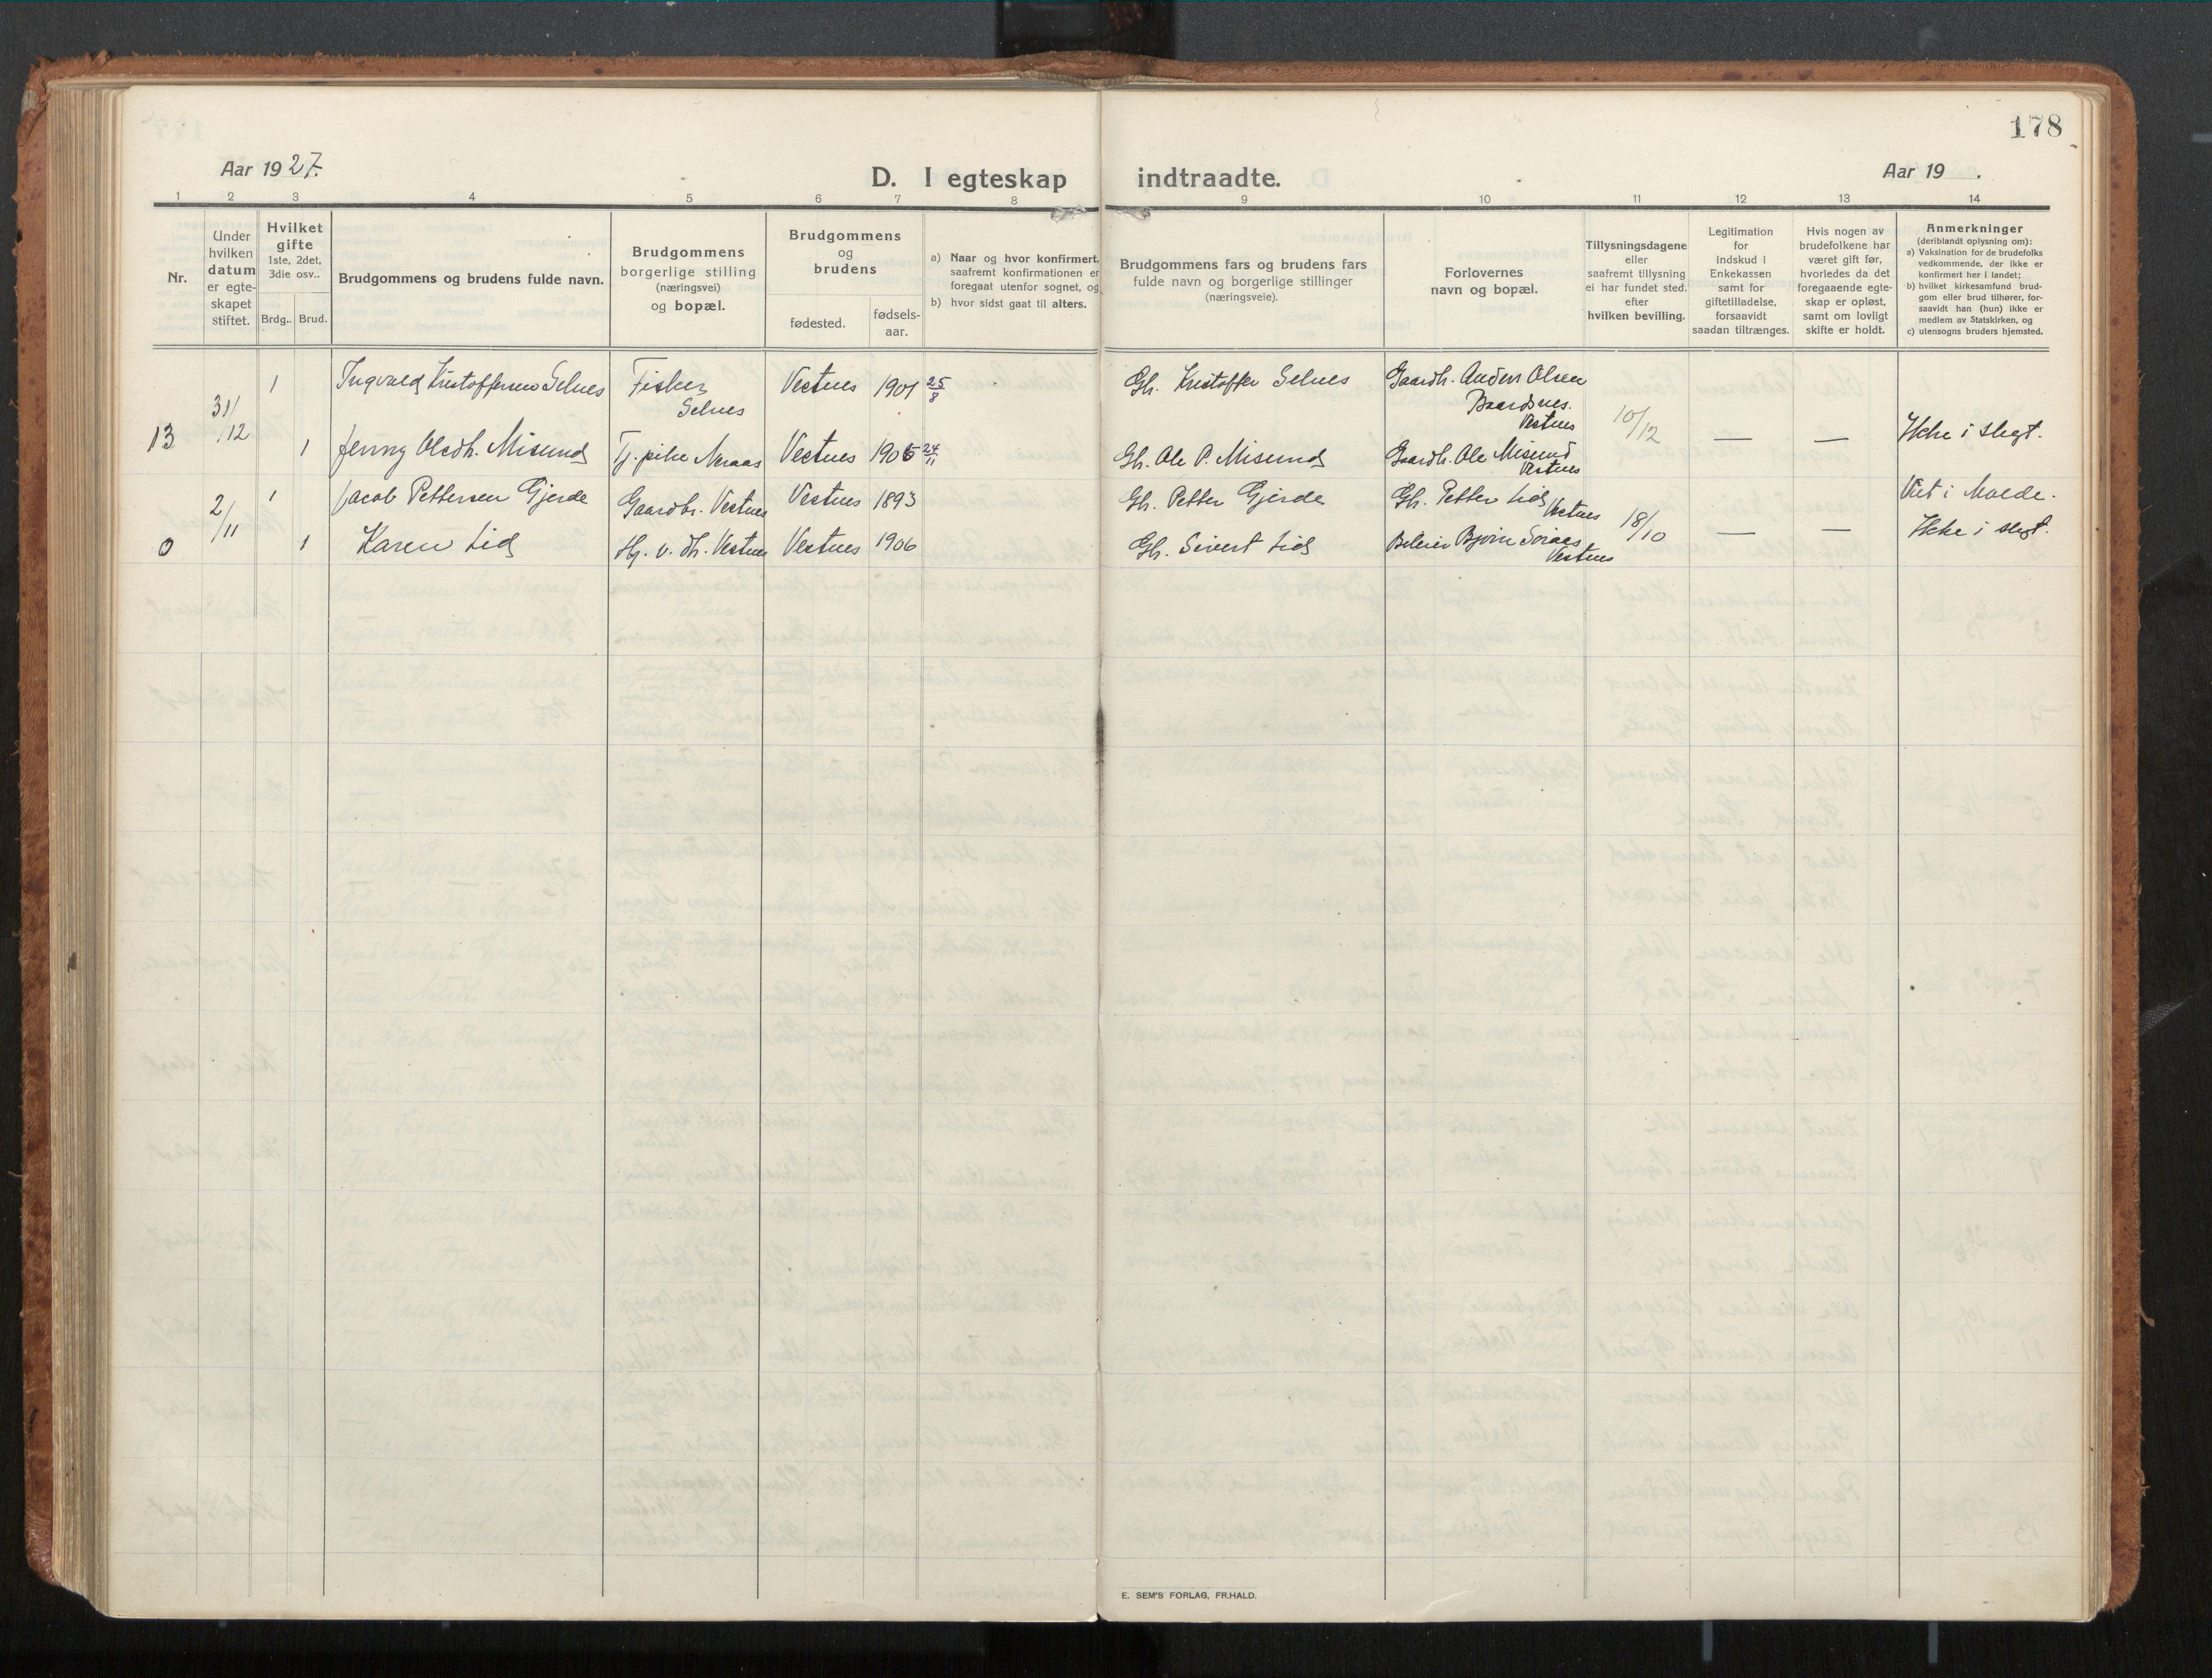 178
Aar 1927.
D. I egteskap indtraadte.
Aar 19 .
1 2 3 4 5 6 7 8 9 10 11 12 13 14
Nr.
Under
hvilken
datum
er egte-
skapet
stiftet.
Hvilket
gifte
1ste, 2det,
3die osv..
Brdg.. Brud.
Brudgommens og brudens fulde navn.
Brudgommens
borgerlige stilling
(næringsvei)
og bopæl.
Brudgommens
og
brudens
fødested.
fødsels-
aar.
a) Naar og hvor konfirmert,
saafremt konfirmationen er
foregaat utenfor sognet, og
b) hvor sidst gaat til alters.
Brudgommens fars og brudens fars
fulde navn og borgerlige stillinger
(næringsveie).
Forlovernes
navn og bopæl.
Tillysningsdagene
eller
saafremt tillysning
ei har fundet sted,
efter
hvilken bevilling.
Legitimation
for
indskud i
Enkekassen
samt for
giftetilladelse,
forsaavidt
saadan tiltrænges.
Hvis nogen av
brudefolkene har
været gift før,
hvorledes da det
foregaaende egte-
skap er opløst,
samt om lovligt
skifte er holdt.
Anmerkninger
(deriblandt oplysning om):
a) Vaksination for de brudefolks
vedkommende, der ikke er
konfirmert her i landet;
b) hvilket kirkesamfund brud-
gom eller brud tilhører, for-
saavidt han (hun) ikke er
medlem av Statskirken, og
c) utensogns bruders hjemsted.
13
31/12
1
Ingvald Kristoffersen Selnes
Fisker
Selnes
Vestnes 1901 25/8
Gb. Kristoffer Selnes
Gaardb. Anders Olsen
Baardsnes.
Vestnes
10/12
—
—
Ikke i slegt.
1
Jenny Olsdtr. Misund
Tj. pike Neraas
Vestnes 1905 24/11
Gb. Ole P. Misund
Gaardb. Ole Misund
Vestnes
0
2/11
1
Jacob Pettersen Gjerde
Gaardbr. Vestnes
Vestnes 1893
Gb. Petter Gjerde
Gb. Petter Lid
Vestnes
18/10
—
—
Viet i Molde.
Ikke i slegt.
1
Karen Lid
Hj. v. Vestnes
Vestnes 1906
Gb. Sivert Lid
Bjørn Soraas
Vestnes
E. SEM'S FORLAG, FR.HALD.